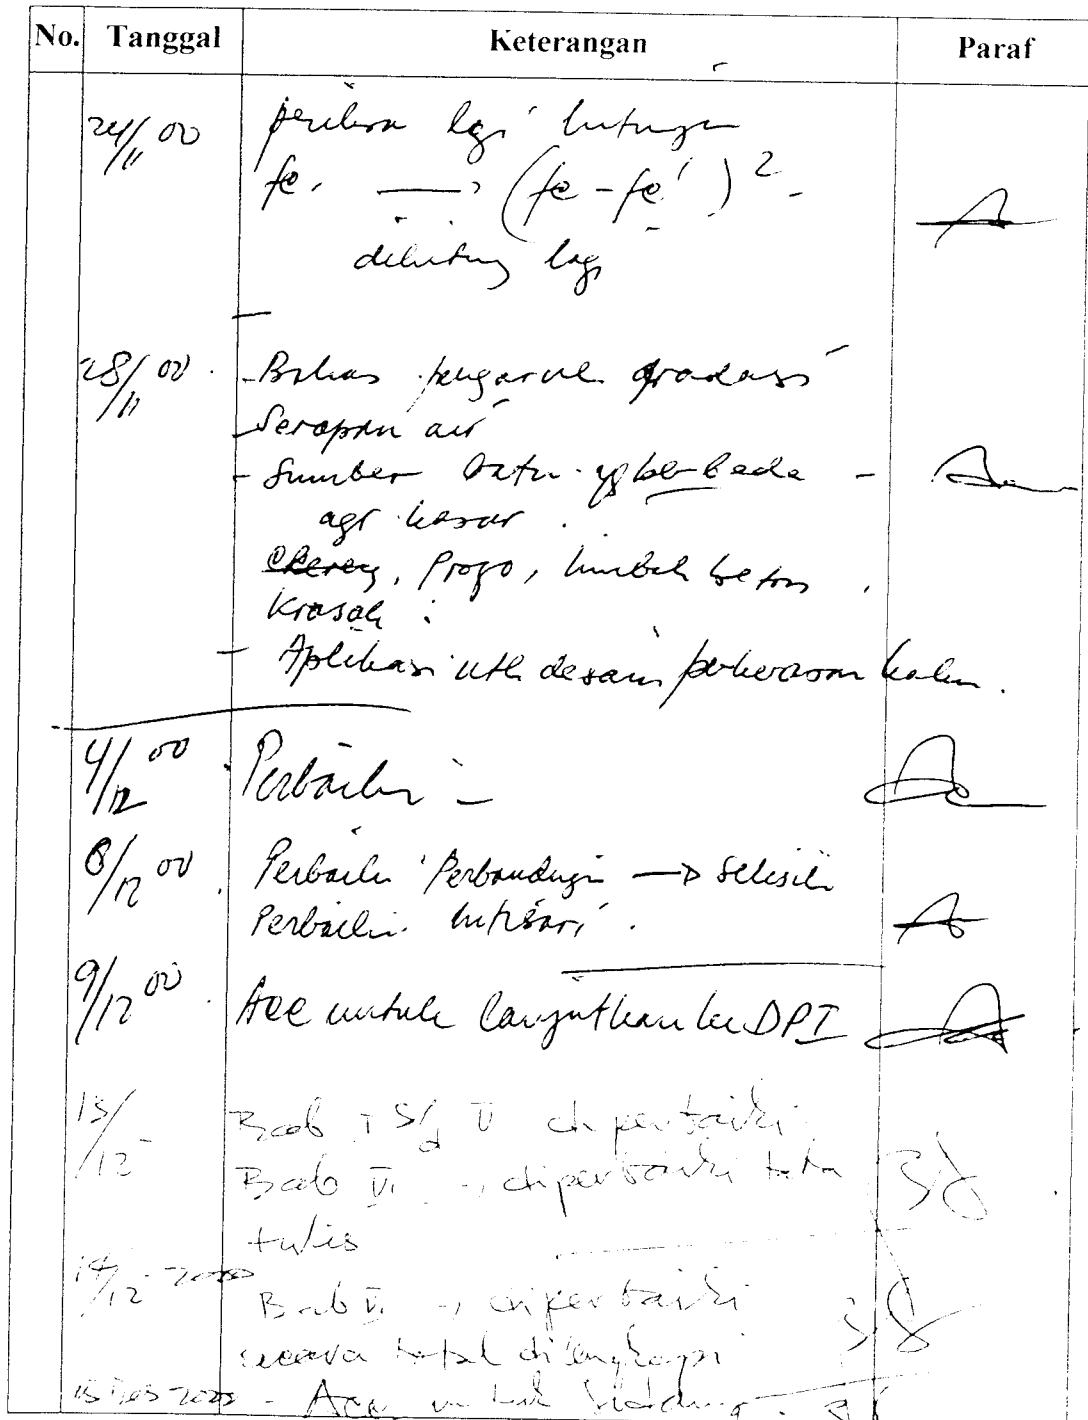 No. Tanggal Keterangan Paraf
24/11 00 periksa lagi hitungan
fe. → (fe - fe')²
dihitung lagi
28/11 00. - Bahas pengaruh gradasi
- Serapan air
- Sumber batu yg berbeda -
agr kasar.
Clereng, Progo, limbah beton,
Krasak.
- Aplikasi utk desain perkerasan kaku.
4/12 00 Perbaiki -
8/12 00 Perbaiki Perbandingan → selisih
Perbaiki intisari.
9/12 00 Acc untuk lanjutkan ke DPI
13/12 Bab I s/d V diperbaiki
Bab VI → diperbaiki tata
tulis
14/12-2000 Bab VI → diperbaiki
secara total dilengkapi
15 Des 2000 - Acc untuk